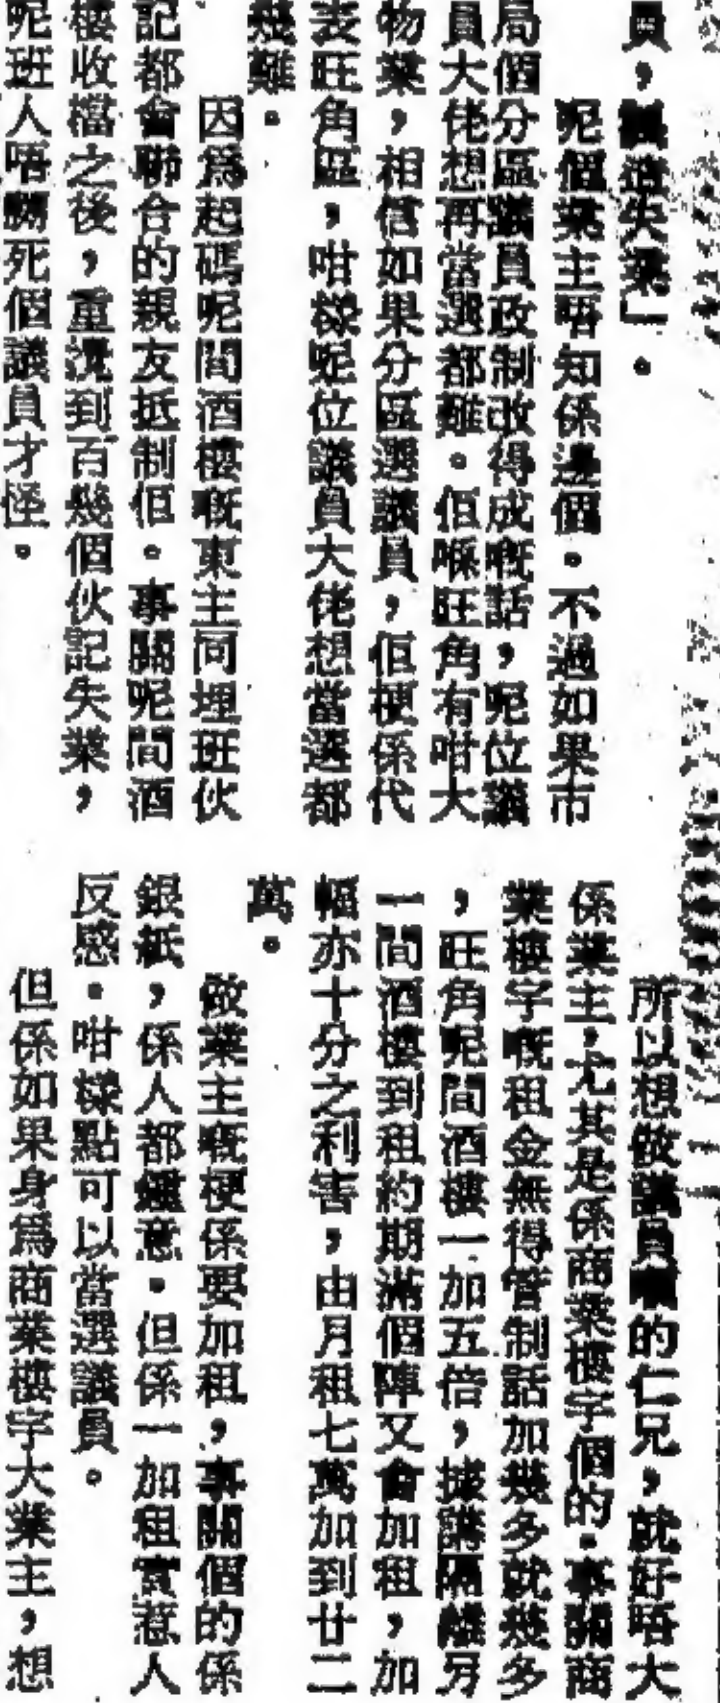 員，　　失業」。
呢個業主唔知係邊個。不過如果市
局個分區議員政制改得成嘅話，呢位議
員大佬想再當選都難。佢喺旺角有咁大
物業，相信如果分區選議員，佢梗係代
表旺角區，咁樣呢位議員大佬想當選都
幾難。
因爲起碼呢間酒樓嘅東主同埋班伙
記都會聯合的親友抵制佢。事關呢間酒
樓收檔之後，重汎到百幾個伙記失業，
呢班人唔鬧死個議員才怪。
所以想做議員嘅的仁兄，就好唔大
係業主，尤其是係商業樓宇個的。事關商
業樓宇嘅租金無得管制話加幾多就幾多
，旺角呢間酒樓一加五倍，據講隔離另
一間酒樓到租約期滿個陣又會加租，加
幅亦十分之利害，由月租七萬加到廿二
萬。
做業主嘅梗係要加租，事關個的係
銀紙，係人都鍾意。但係一加租實惹人
反感。咁樣點可以當選議員。
但係如果身爲商業樓宇大業主，想